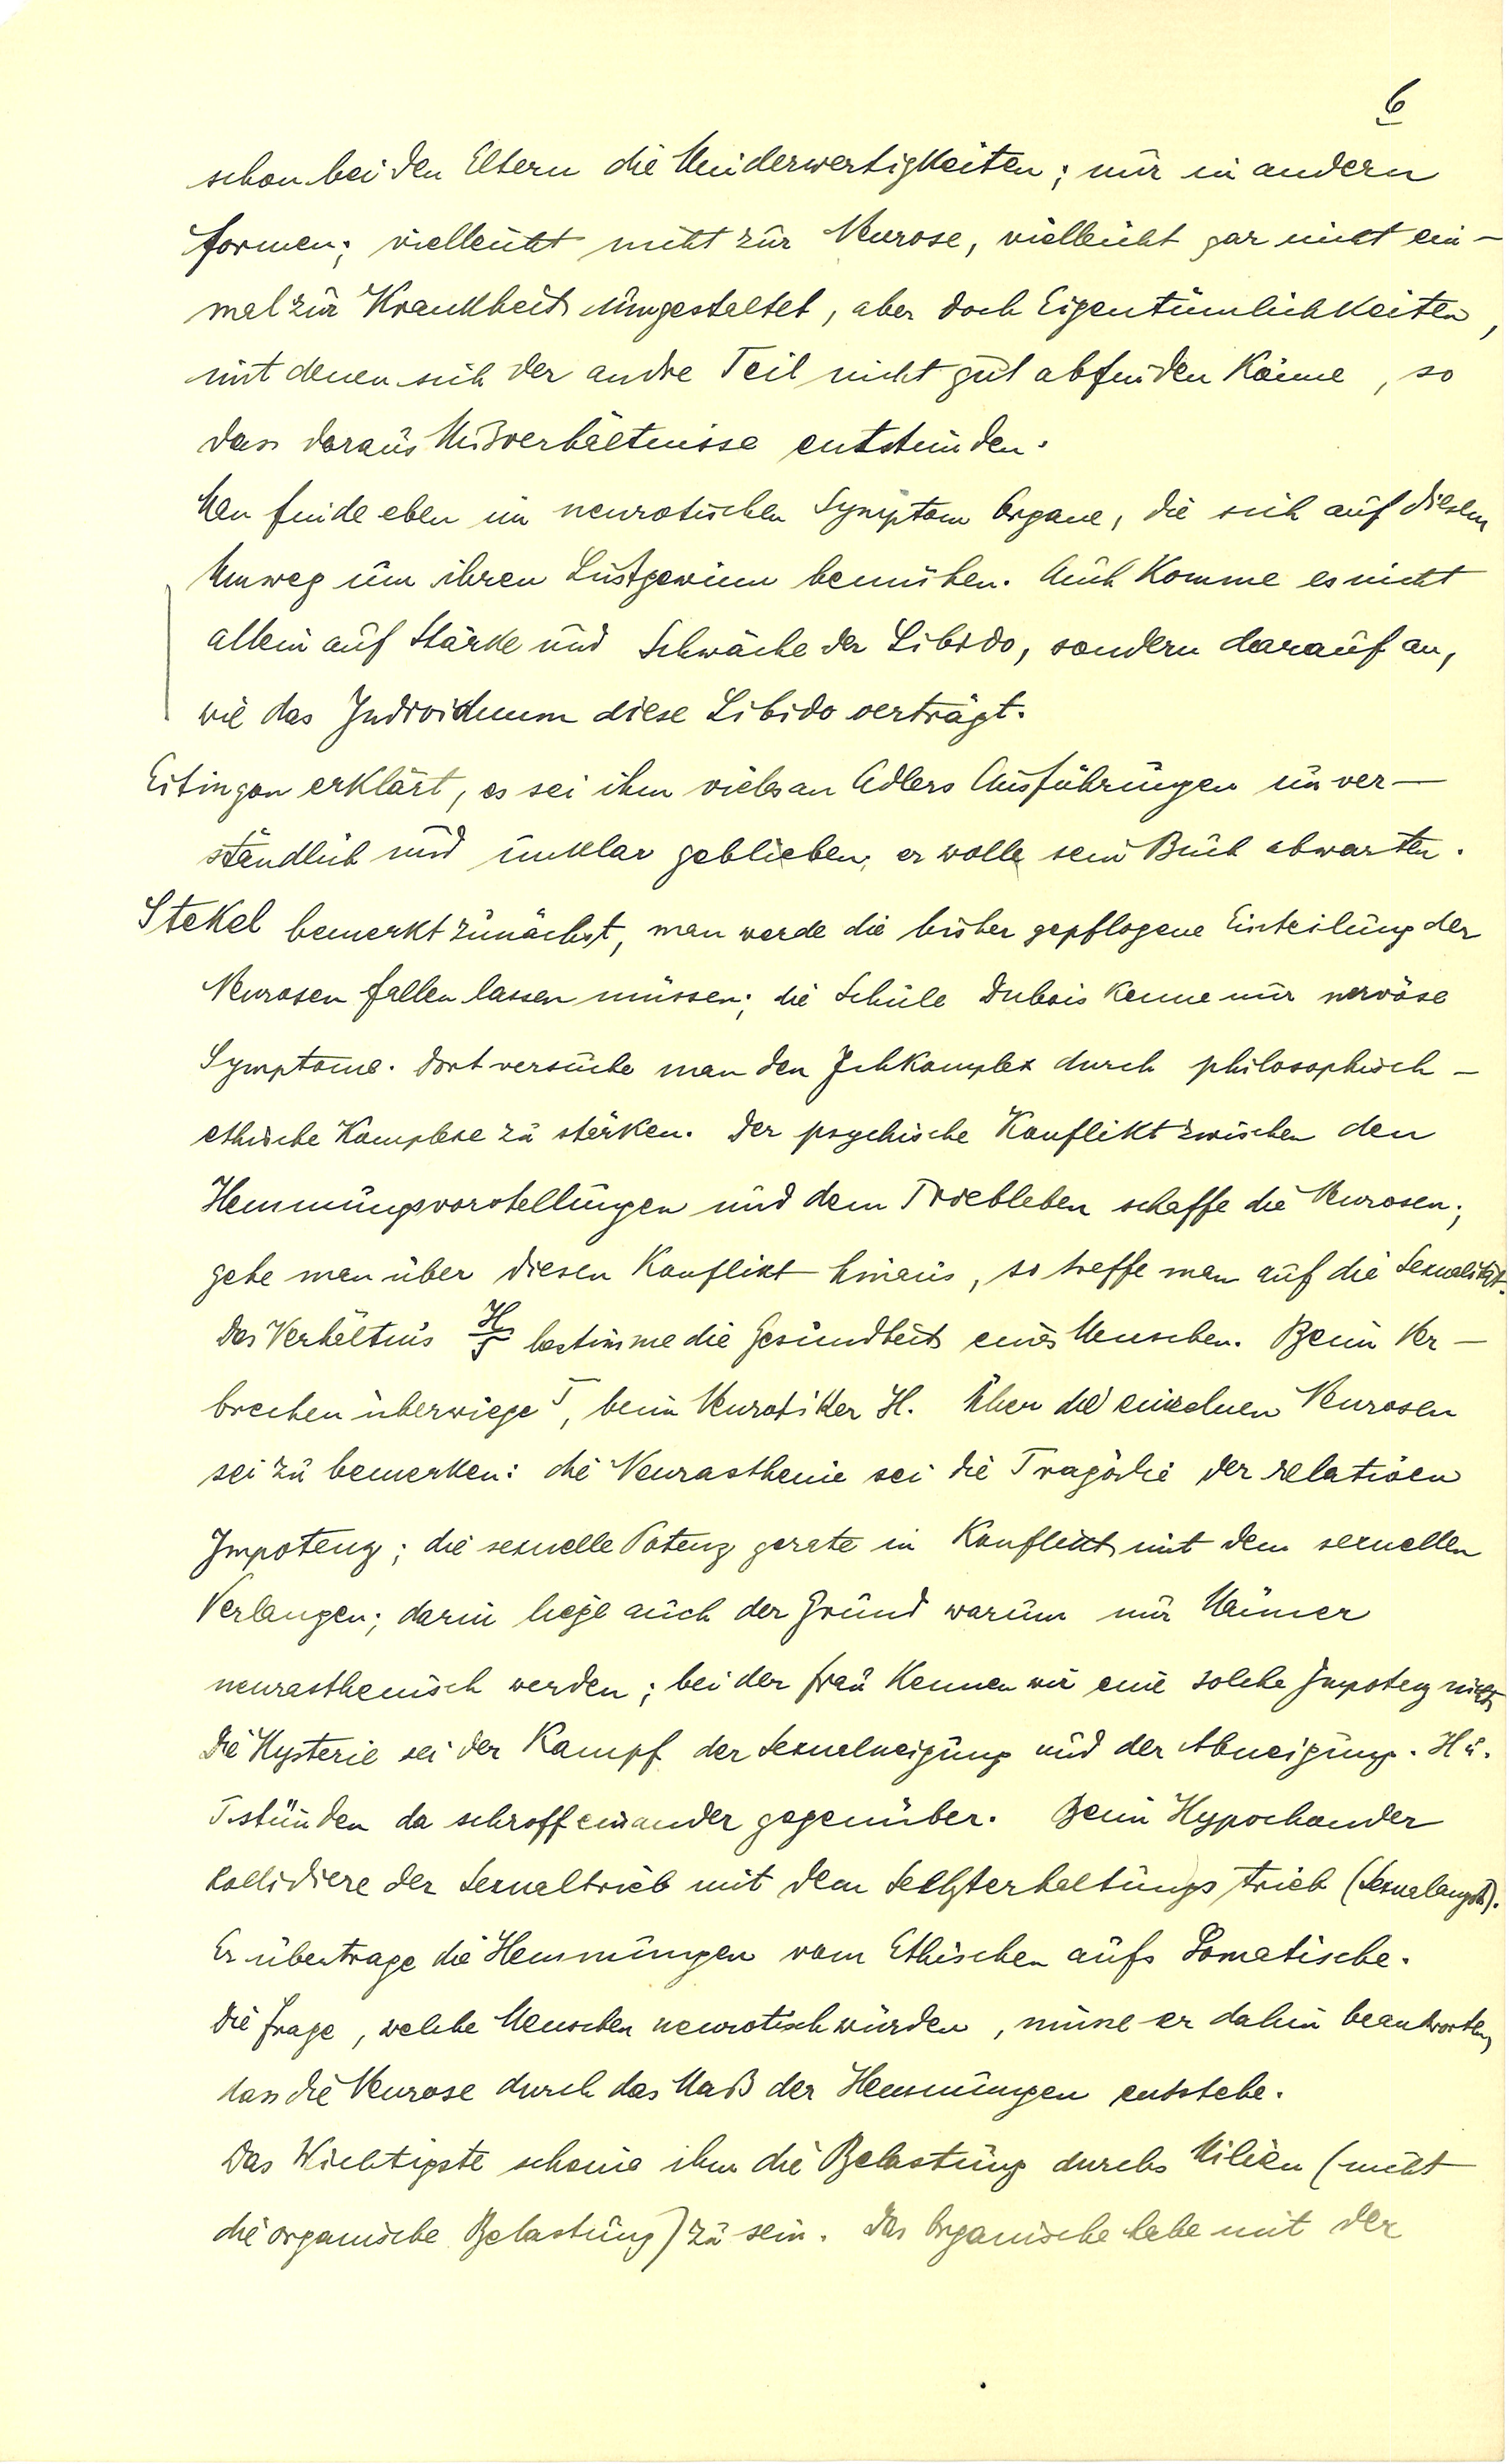 6
schon bei den Eltern die Minderwertigkeiten; nur in andern
Formen; vielleicht nicht zur Neurose, vielleicht gar nicht ein-
mal zur Krankheit umgestaltet, aber doch Eigentümlichkeiten,
mit denen sich der andre Teil nicht gut abfinden könne, so
dass daraus Mißverhältnisse entstünden.
Man finde eben im neurotischen Symptom Organe, die sich auf diesem
Umweg um ihren Lustgewinn bemühen. Auch komme es nicht
allein auf Stärke und Schwäche der Libido, sondern darauf an,
wie das Individuum diese Libido verträgt.
Eitingon erklärt, es sei ihm vieles an Adlers Ausführungen unver-
ständlich und unklar geblieben; er wolle sein Buch abwarten.
Stekel bemerkt zunächst, man werde die bisher gepflogene Einteilung der
Neurosen fallen lassen müssen; die Schule Dubois kenne nur nervöse
Symptome. Dort versuche man den Ichkomplex durch philosophisch-
ethische Komplexe zu stärken. Der psychische Konflikt zwischen den
Hemmungsvorstellungen und dem Triebleben schaffe die Neurosen;
gehe man über diesen Konflikt hinaus, so treffe man auf die Sexualität.
Das Verhältnis H/T bestimme die Gesundheit eines Menschen. Beim Ver-
brechen überwiege T, beim Neurotiker H. Über die einzelnen Neurosen
sei zu bemerken: die Neurasthenie sei die Tragödie der relativen
Impotenz; die sexuelle Potenz gerate in Konflikt mit dem sexuellen
Verlangen; darin liege auch der Grund warum nur Männer
neurasthenisch werden; bei der Frau kennen wir eine solche Impotenz nicht.
Die Hysterie sei der Kampf der Sexualneigung und der Abneigung. H u.
T stünden da schroff einander gegenüber. Beim Hypochonder
kollidiere der Sexualtrieb mit dem Selbsterhaltungstrieb (Sexualangst).
Er übertrage die Hemmungen vom Ethischen aufs Somatische.
Die Frage, welche Menschen neurotisch würden, müsse er dahin beantworten,
dass die Neurose durch das Maß der Hemmungen entstehe.
Das Wichtigste scheine ihm die Belastung durchs Milieu (nicht
die organische Belastung) zu sein. Das Organische habe mit der